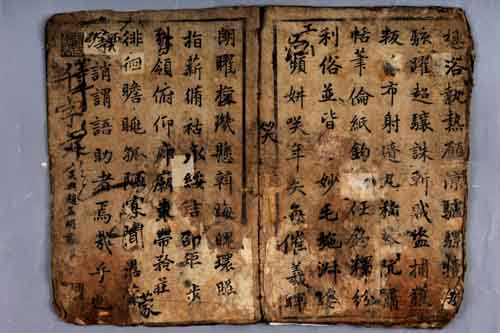 想浴執熱願涼驢騾犢
駭躍超驤誅斬賊盜捕獲
叛布射遼丸嵇琴阮嘯
恬筆倫紙鈞任釣釋紛
利俗並皆妙毛施淑姿
工顰妍咲年矢每催羲暉
笑
朗曜璇璣懸斡晦魄環照
指薪脩祜永綏吉邵矩步
領俯仰廊廟束帶矜莊
徘徊瞻眺孤陋寡聞愚蒙
誚謂語助者焉哉乎也